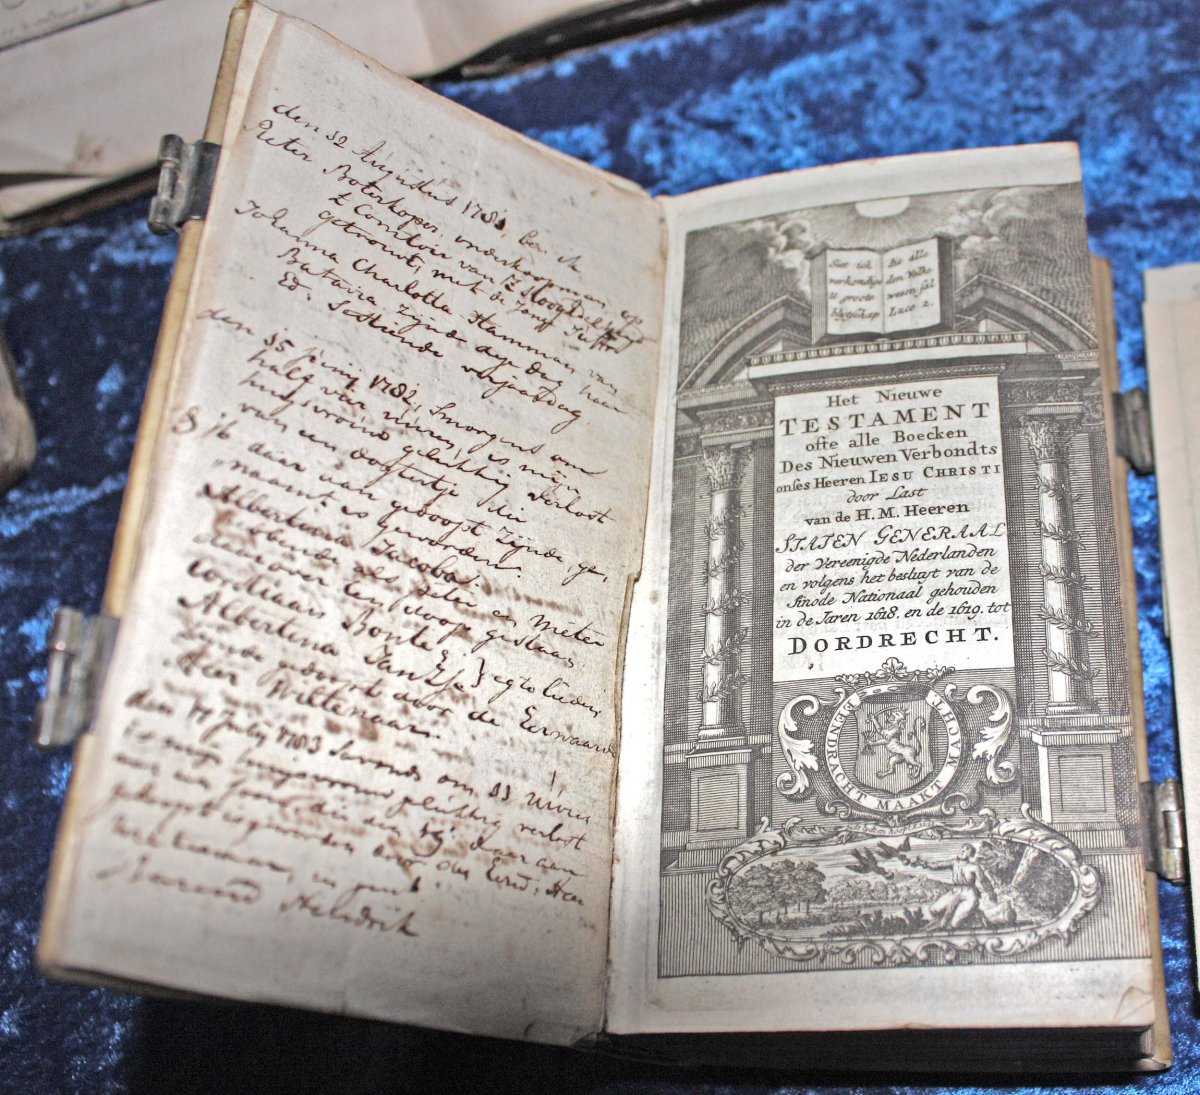 den 12 Augustus 1781, ben ik
Pieter Boterkoper, onderkoopman, op
't Comtoir van 't
getrouwt, met de Jong Juffr
Johanna Charlotta Hamman van
Batavia zijnde dien dag haar
Ed. verjaardag
den 15 Junij 1782, Smorgens om
half van is mijn
huijsvrouw gelukkig verlost
van een dogtertje die
16 daar aan gedoopt zijnde, ge,
naamt is geworden.
Albertina Jacoba.
hebbende als Peter en Meter
daar over ten doop gestaan
Bonte
Albertina Jantje egte lieden,
zijnde gedoopt door de Eerwaarde
Heer Wiltenaar.
den 11 Julij 1783 Savonds om 11 Uuren
is mijn huijsvrouw gelukkig verlost
van een Zoon die den daar aan
gedoopt is geworden door den Eerw: Heer
en gent
Barend Hendrik
Siet ick
verkondige
U groote
blijtschap
die alle
den Volke
wesen sal
Luce 2.
Het Nieuwe
TESTAMENT
ofte alle Boecken
Des Nieuwen Verbondts
onses Heeren IESU CHRISTI
door Last
van de H. M. Heeren
STATEN GENERAAL
der Vereenigde Nederlanden
en volgens het besluyt van de
Sinode Nationaal gehouden
in de Jaren 1618. en de 1619. tot
DORDRECHT.
EENDRACHT MAAKT MACHT